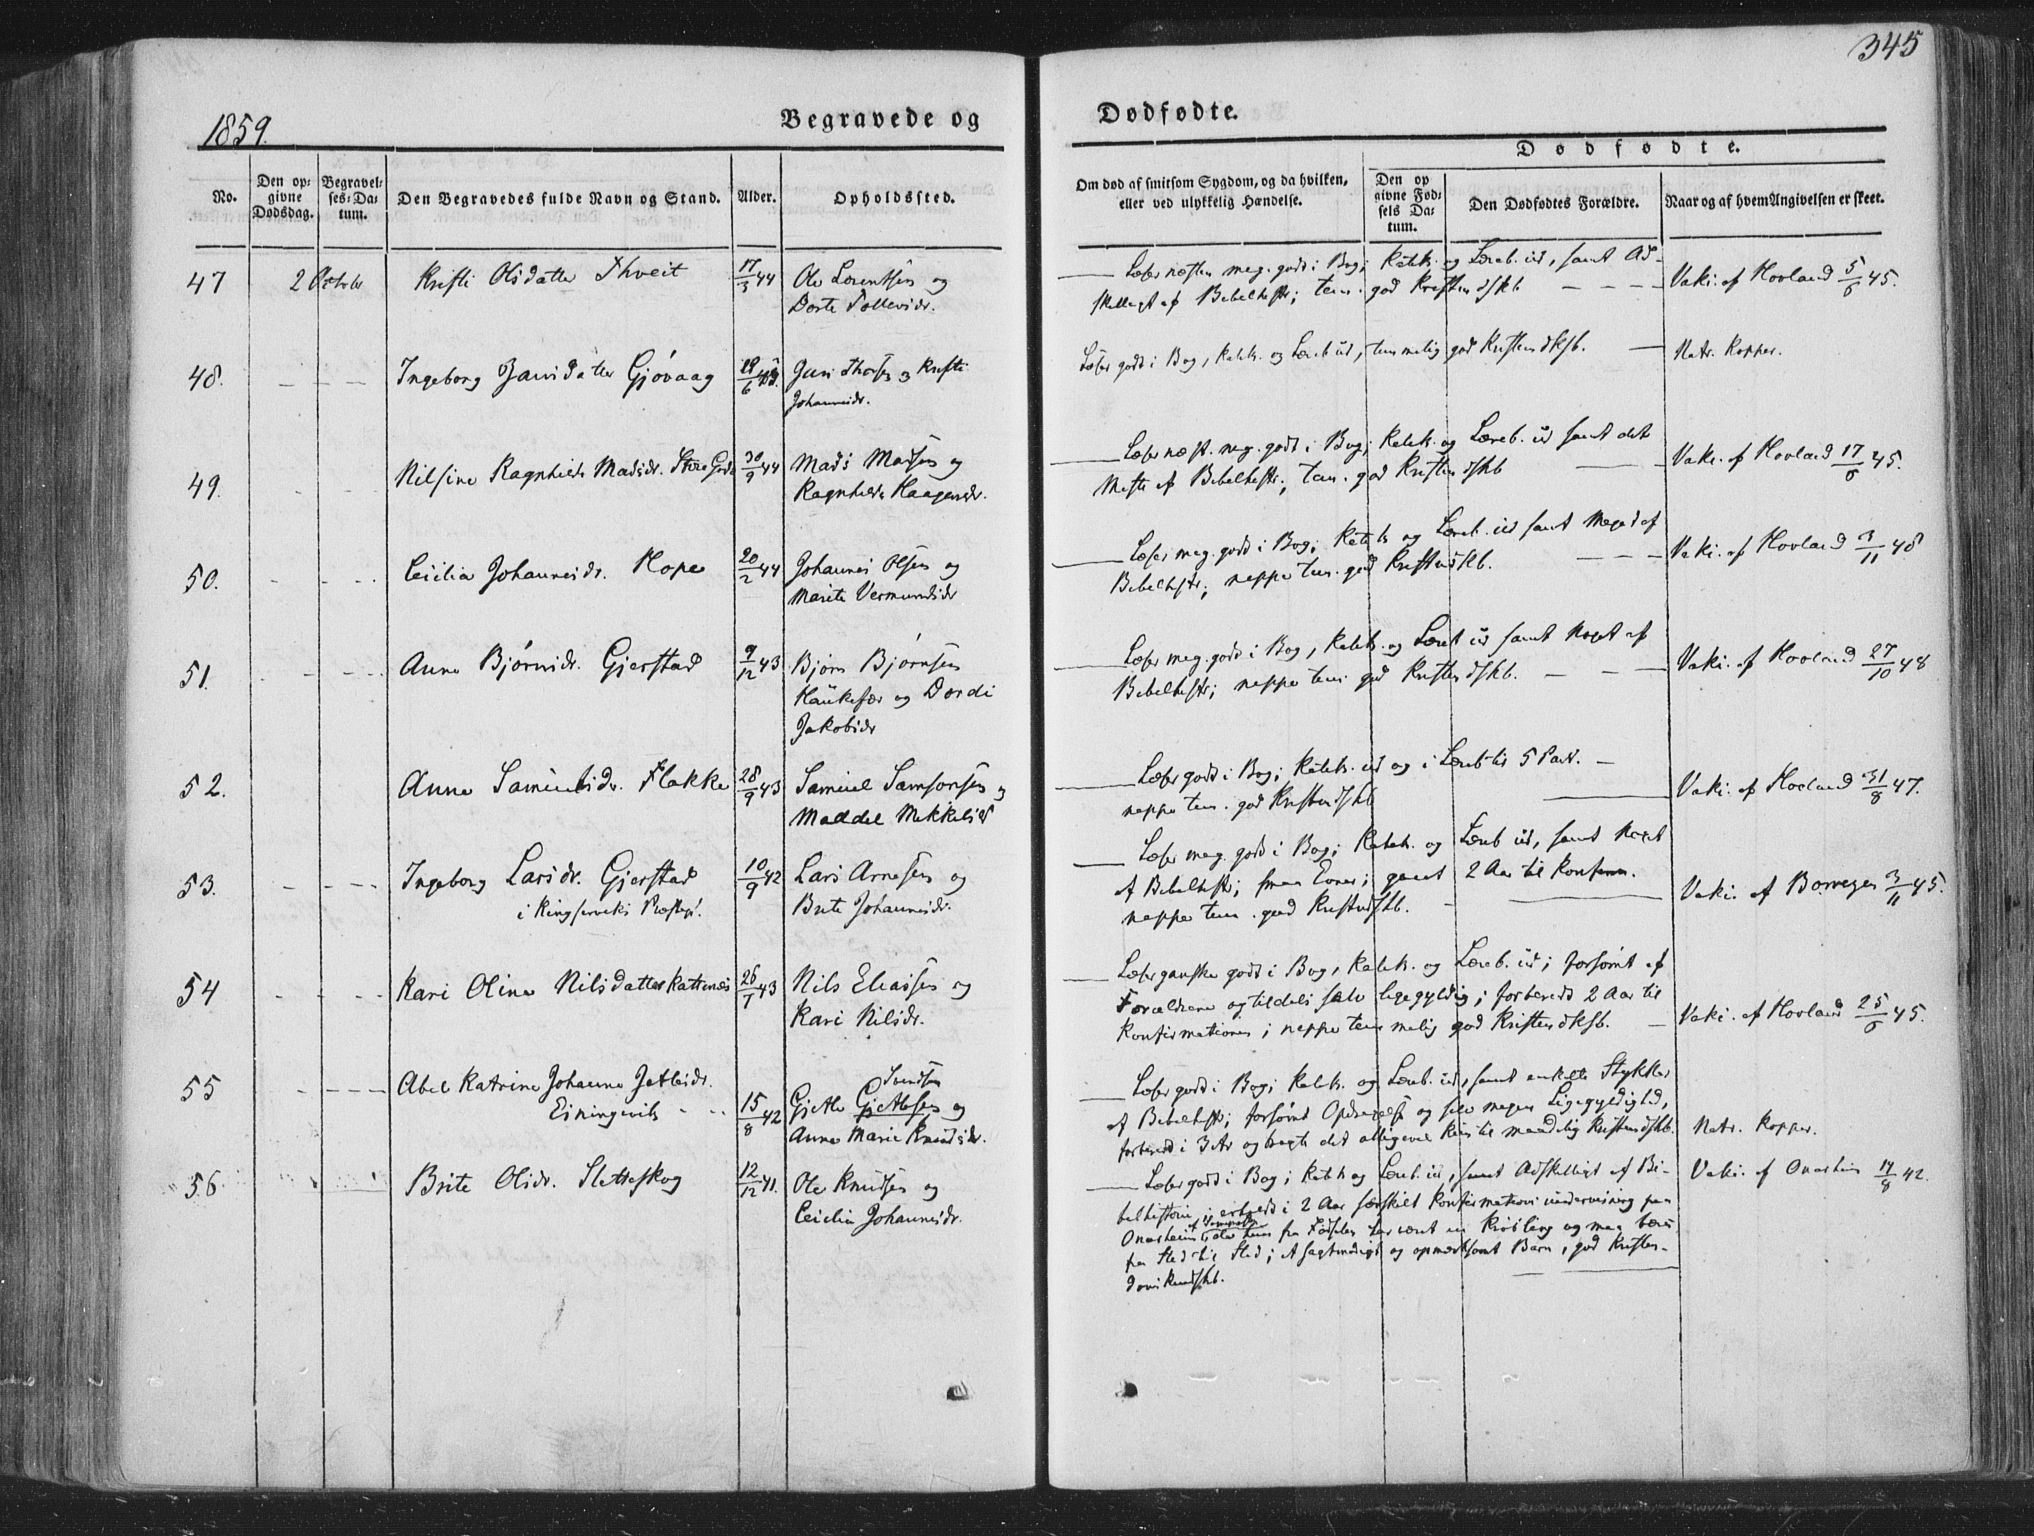 345
1859.
Begravede og Dødfødte.
Dødfødte.
No.
Den opgivne Dødsdag.
Begravelses-Datum.
Den Begravedes fulde Navn og Stand.
Alder.
Opholdssted.
Om død af smitsom Sygdom, og da hvilken,
eller ved ulykkelig Hændelse.
Den opgivne Fødsels Datum.
Den Dødfødtes Forældre.
Naar og af hvem Angivelsen er skeet.
47 2 October Kristi Olsdatter Thveit 17/3 44 Ole Lorentsen og
Dorte Tollevsdr.
Læser næsten meg. godt i Bog; Katek. og Læreb. ud, samt Ad-
skilligt af Bibelhistr; tem. god Kristendskb
Vaki. af Hovland 5/6 45.
48. Ingeborg Gjøvaag
Johannesdr.
Læser godt i Bog, Katek. og Læreb ud, temmelig god Kristendksb.
Natr. Kopper.
49. Nilsine Ragnhilde Madsdr. 30/9 44 Mads Madsen og
Ragnhilde Haagensdr.
Læser næst. meg. godt i Bog; Katek. og Læreb. ud samt det
Meste af Bibelhistr.; tem. god Kristendskb
Vaki. af Hovland 17/6 45.
50. Ceicilia Johannesdr. Hope 20/2 44 Johannes Olsen og
Marite Vermundsdr
Læser meg. godt i Bog; Katek og Læreb. ud samt Meget af
Bibelhistr; neppe tem. god Kristendskb.
Vaki. af Hovland 3/11 48
51. Anne Bjørnsdr. Gjerstad 9/12 43 Bjørn Bjørnsen
Haukefær og Dordi
Jakobsdr
Læser meg. godt i Bog, Katek. og Læreb ud samt Noget af
Bibelhistr; neppe tem. god Kristendskb.
Vaki. af Hovland 27/10 48
52. Anne Samuelsdr. Flakke 28/9 43 Samuel Samsonsen og
Maddel Mikkelsdr
Læser godt i Bog; Katek. ud og i Læreb til 5 Part.
neppe tem. god Kristendskb
Vaki. af Hovland 31/8 47.
53. Ingeborg Larsdr. Gjerstad 10/9 42 Lars Arnesen og
i Kingserviks Præstegj. Brite Johannesdr.
Læser meg. godt i Bog; Katek. og Læreb ud, samt Noget
af Bibelhistr; smaa Evner; gaaet 2 Aar til Konfirm.
neppe tem. god Kristendskb.
Vaki. af 3/11 45.
54 Kari Oline Nilsdatter Kattenæs 43 Nils Eliassen og
Kari Nilsdr.
Læser ganske godt i Bog, Katek. og Læreb. ud; forsømt af
Forældrene og tildels selv ligegyldig; forberedt 2 Aar til
Konfirmationen; neppe temmelig god Kristendksb.
Vaki. af Hovland 25/6 45.
55 Abel Katrine Johanne Jetlesdr.
Einingevik 15/8 42 Gjetle Gjetlesen og
Svendsen
Anne Marie Knudsdr.
Læser godt i Bog; Katek. og Læreb. ud, samt enkelte Stykker
af Bibelhistr; forsømt Opdragelse og selv megen Ligegyldighed,
forberedt i 3 Ar og det alligevel kun til maadelig Kristendskb.
Natr. Kopper.
56 Brite Olsdr. Sletteskog 12/12 41. Ole Knudsen og
Ceicilia Johannesdr.
Læser godt i Bog; Katek og Læreb. ud, samt Adskilligt af Bi-
belhistorie; i 2 Aar særskilt Konfirmationsundervisning paa
Onarheim; hun fra Fødselen har været en Krøbling og maa bæres
fra Sted til Sted; et sagtmodigt og opmærksomt Barn, god Kristen-
domskundskb.
Vaki. af Onarheim 17/8 42.